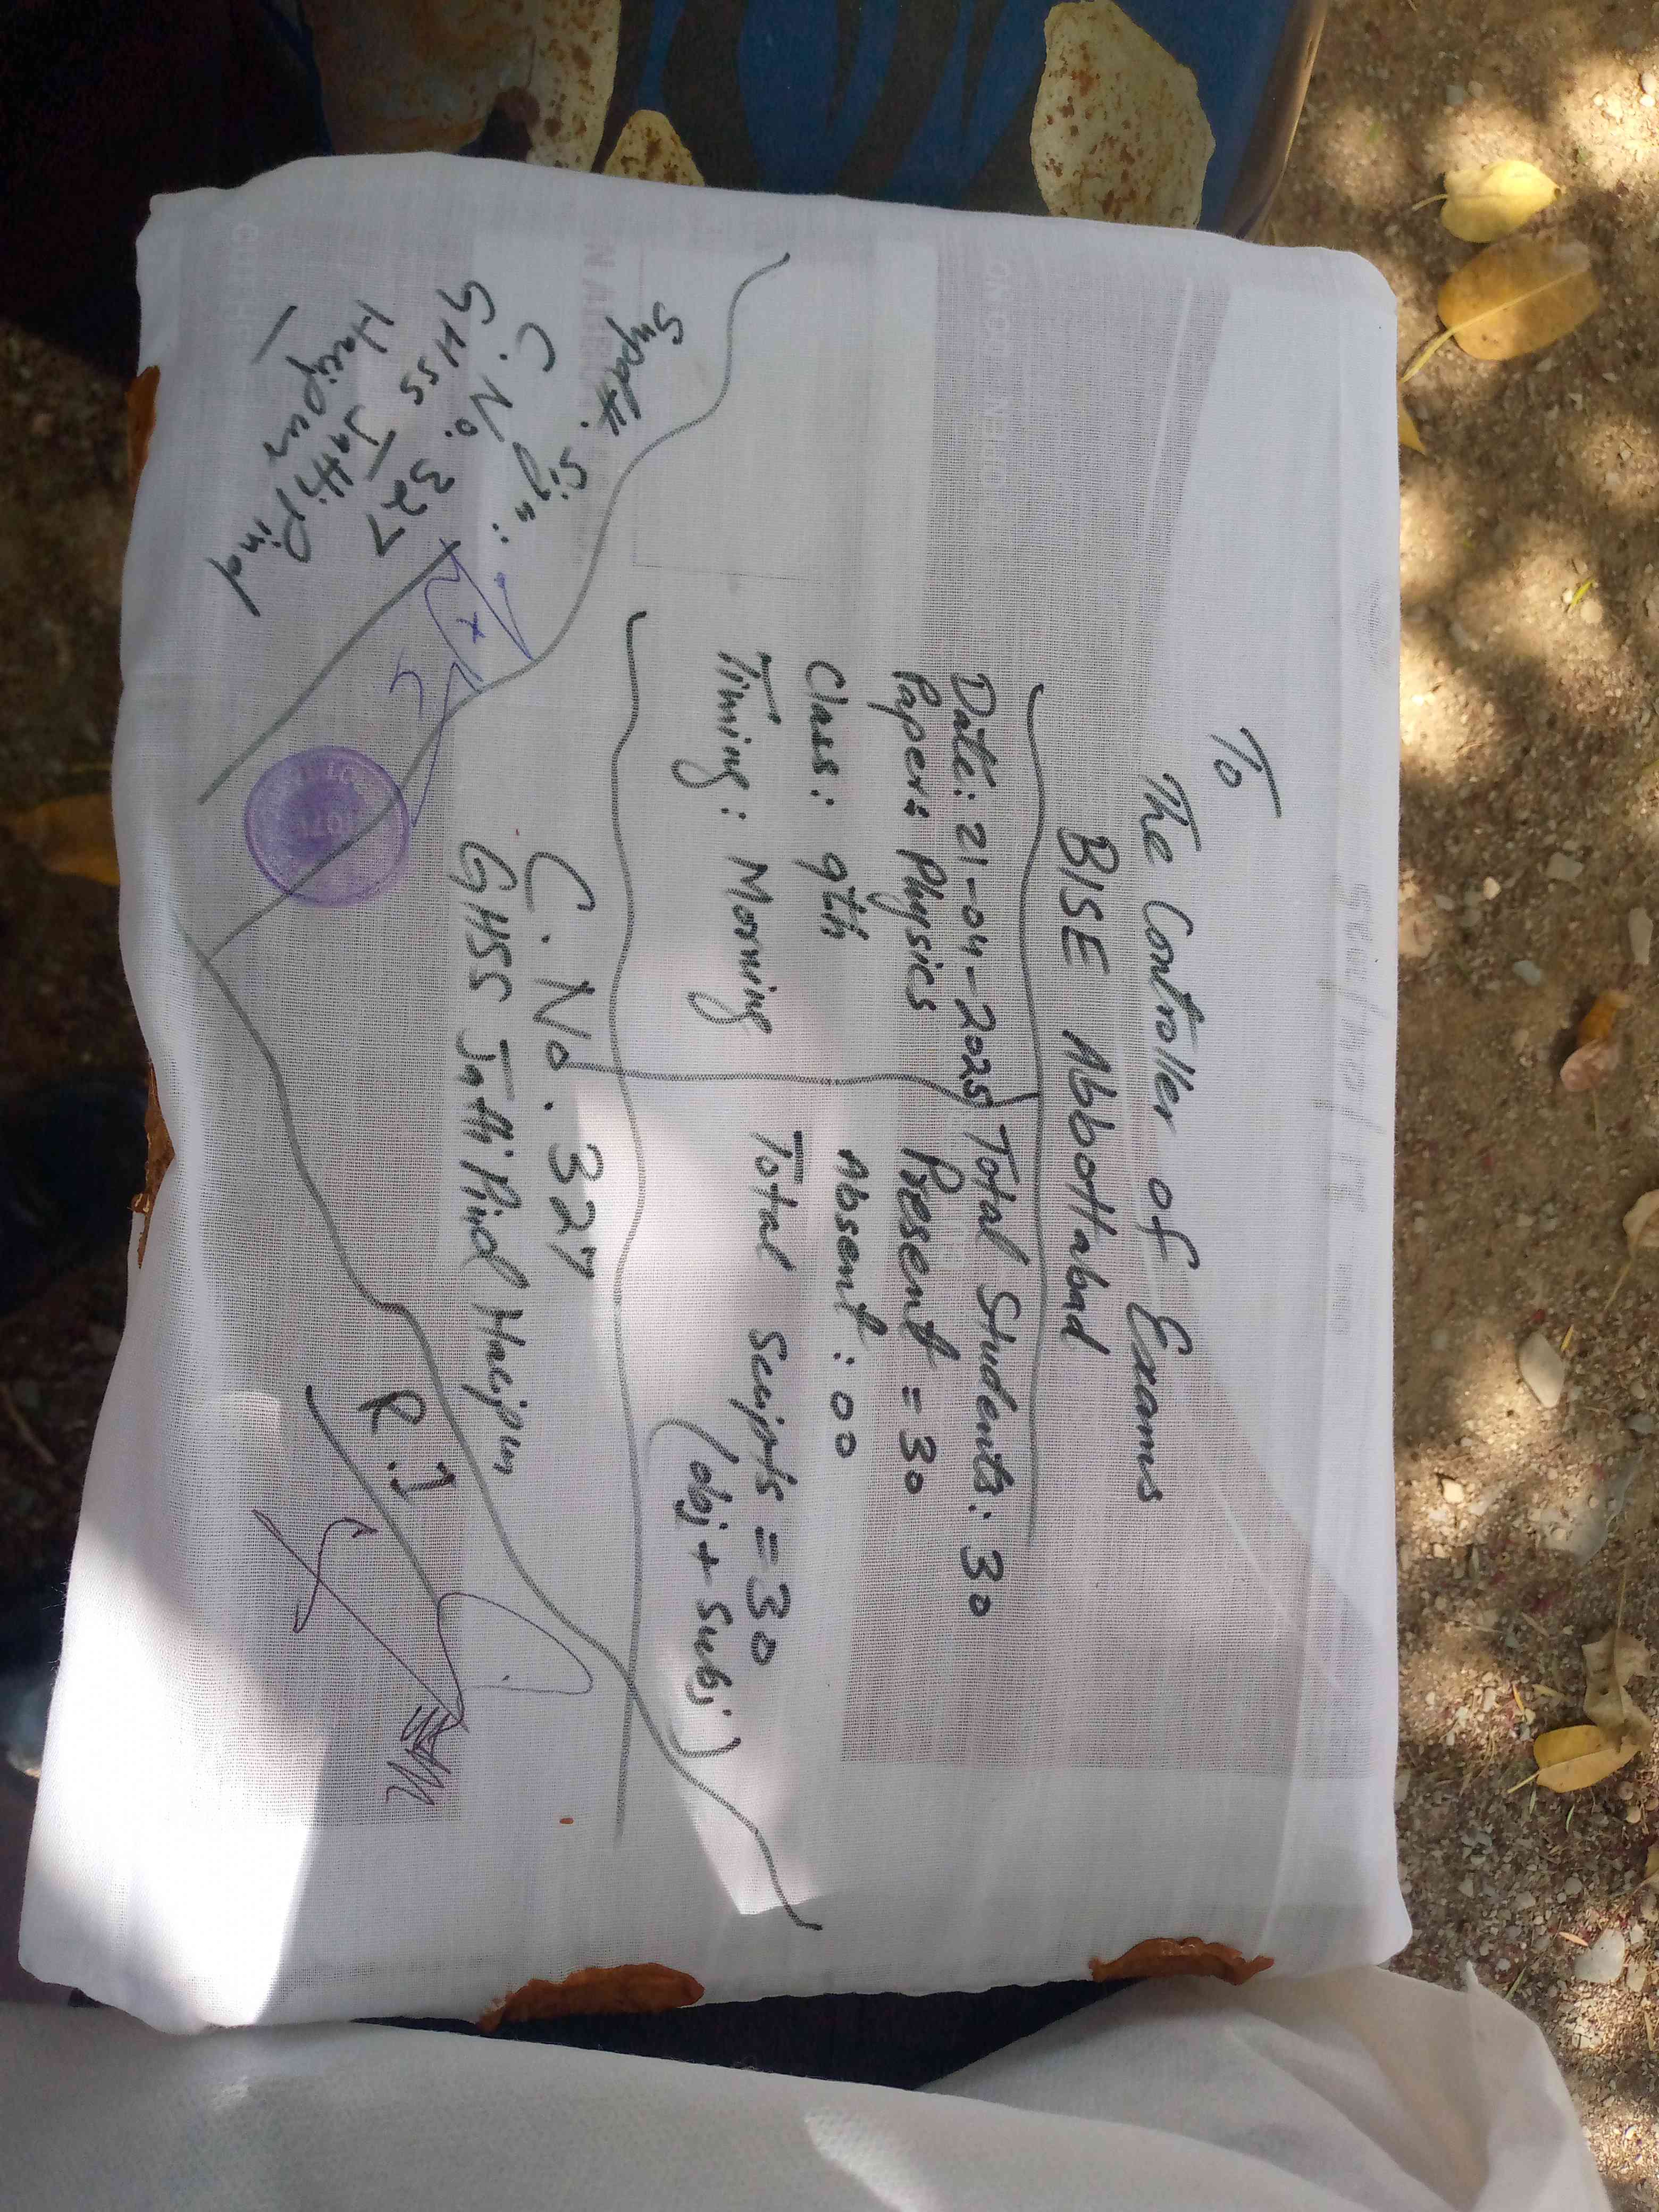 To
The Controller of Exams
BISE Abbottabad
Date: 21-04-2025
Paper: Physics
Class: 9th
Timing: Morning
Total Students: 30
Present = 30
Absent: 00
Total Scripts = 30
(obj + Subj)
C. No. 327
GHSS Jatti Pind Haripur
Supdtt. Sign:
C. No. 327
GHSS Jatti Pind
Haripur
R.I